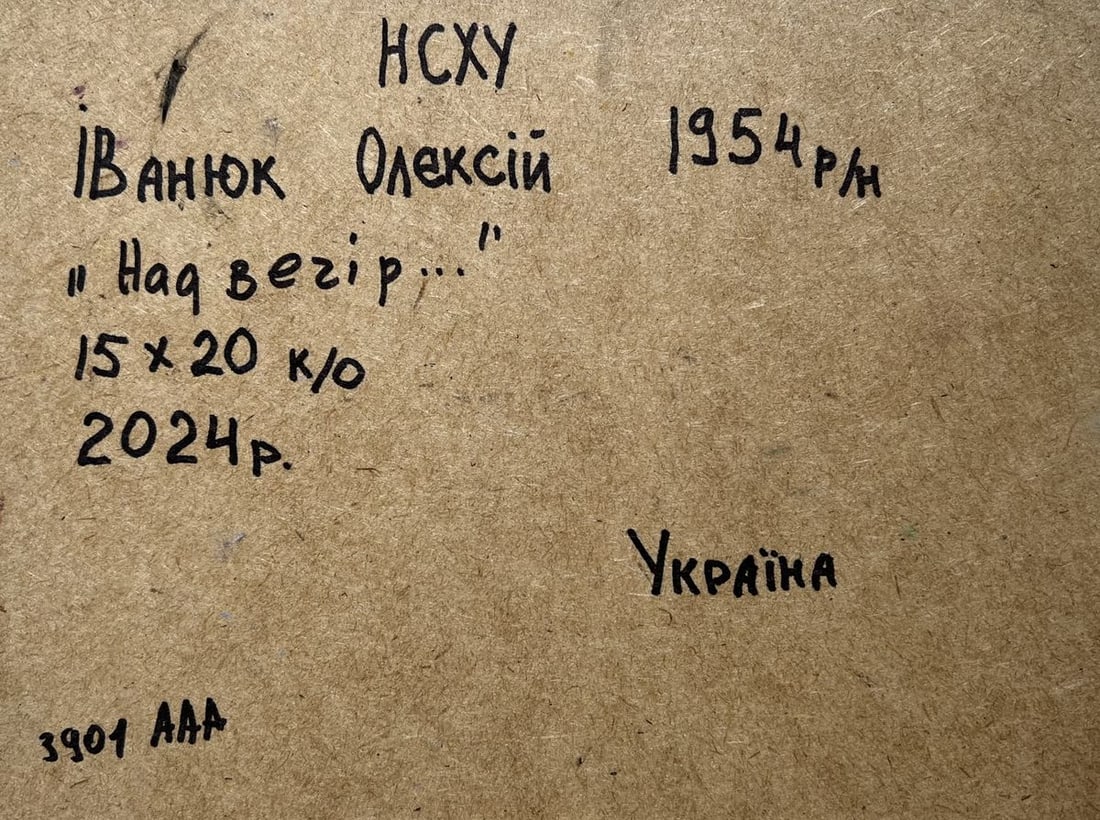 НСХУ
Іванюк Олексій 1954 р/н
„Над вечір..."
15 х 20 к/о
2024р.
Україна
3901 ААА